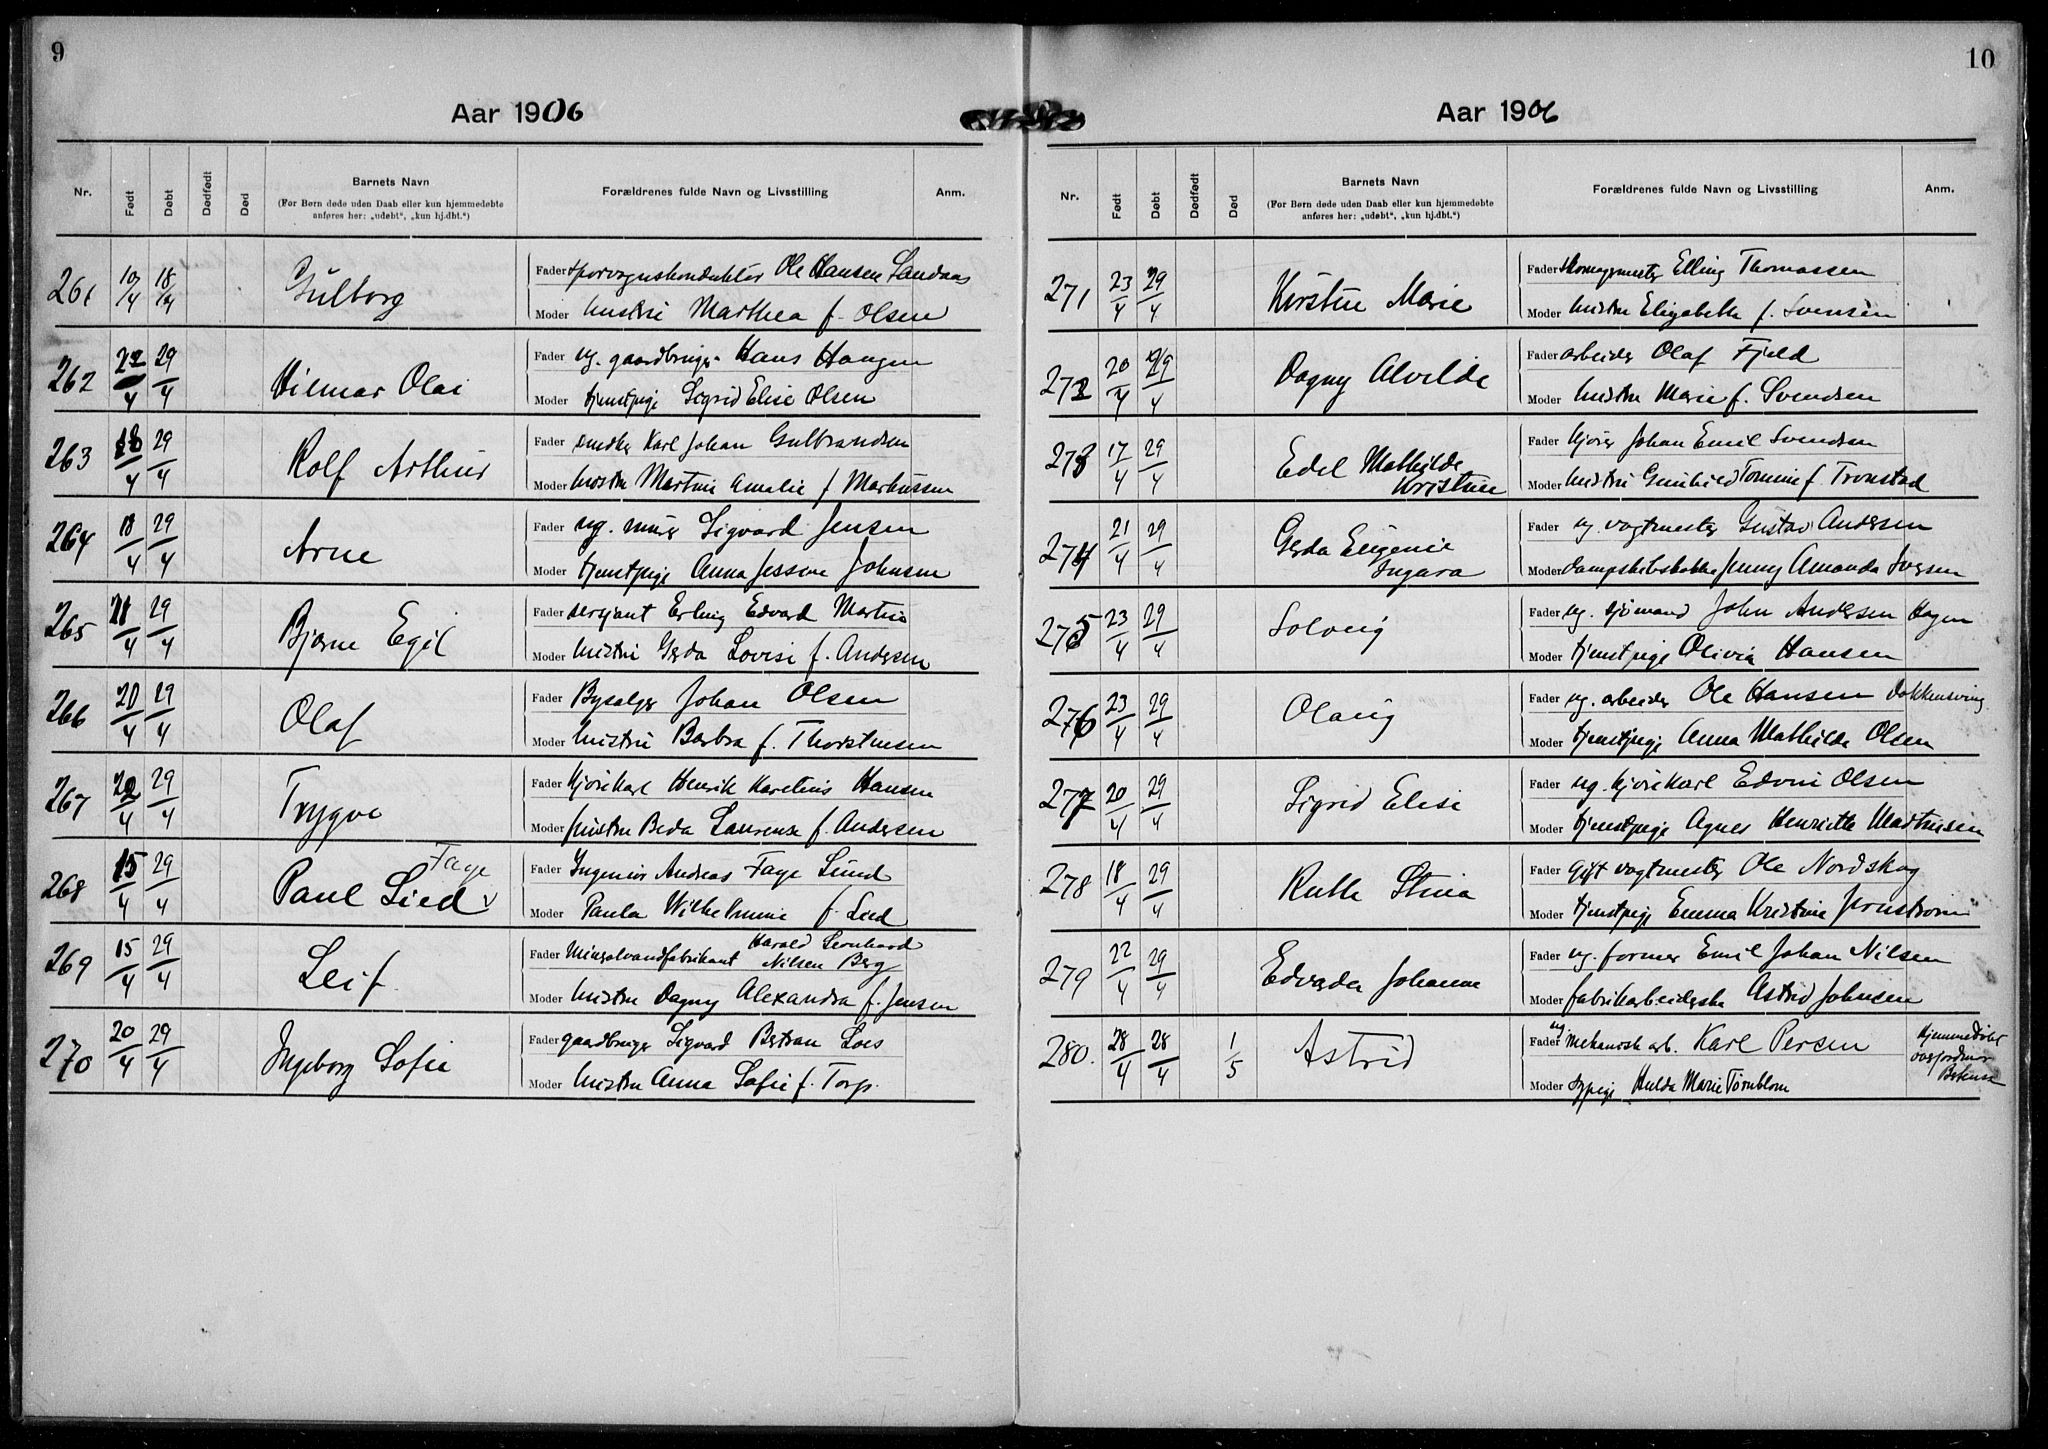 9
Aar 1906
Nr. Født Døbt Dødfødt Død Barnets Navn Forældrenes fulde Navn og Livsstilling Anm.
(For Børn døde uden Daab eller kun hjemmedøbte
anføres her: „udøbt“, „kun hj.dbt.“)
Fader sporvognskonduktør Ole Hansen Sandaas
261 10/4 18/4 Gulborg
Moder hustru Marthea f. Olsen
Fader ug. gaardbruger Hans Haugen
262 22/4 29/4 Hilmar Olai
Moder tjenstpige Sigrid Elise Olsen
Fader snedker Karl Johan Gulbrandsen
263 18/4 29/4 Rolf Arthur
Moder hustru Martine Amalie f. Markussen
Fader ug. murer Sigvard Jensen
264 18/4 29/4 Arne
Moder tjenstpige Anna Jessine Johnsen
Fader sersjant Erling Edvard Martin
265 21/4 29/4 Bjarne Egil
Moder hustru Gerda Lovise f. Andersen
Fader Bysælger Johan Olsen
266 20/4 29/4 Olaf
Moder hustru Barbra f. Thorstensen
Fader kjørekarl Henrik Karelius Hansen
267 22/4 29/4 Trygve
Moder hustru Beda Laurense f. Andersen
Faye
Fader Ingeniør Andreas Faye Lund
268 15/4 29/4 Paul Lied
Moder Paula Wilhelmine f. Lied
Harald Leonhard
Fader Mineralvandfabrikant Nilsen Berg
269 15/4 29/4 Leif
Moder hustru Dagny Alexandra f. Jensen
Fader gaardbruger Sigvard Bertran Loes
270 20/4 29/4 Ingeborg Sofie
Moder hustru Anna Sofie f. Torp
10
Aar 1906
Nr. Født Døbt Dødfødt Død Barnets Navn Forældrenes fulde Navn og Livsstilling Anm.
(For Børn døde uden Daab eller kun hjemmedøbte
anføres her: „udøbt“, „kun hj.dbt.“)
Fader skomagermester Elling Thomassen
271 23/4 29/4 Kirstine Marie
Moder hustru Elisabeth f. Svensen
Fader arbeider Olaf Fjeld
272 20/4 29/4 Dagny Alvilde
Moder hustru Marie f. Svendsen
Fader kjører Johan Emil Svendsen
273 17/4 29/4 Edel Mathilde
Kristine
Moder hustru Gunhild Tomine f. Tronstad
Fader ug. vagtmester Gustav Andersen
274 21/4 29/4 Gerda Eugenie
Ingara
Moder dampskibskokke Jenny Amanda Iversen
Fader ug. sjømand John Andersen Hagen
275 23/4 29/4 Solveig
Moder tjenstpige Olivia Hansen
Fader ug. arbeider Ole Hansen Dokkensving
276 23/4 29/4 Olaug
Moder tjenstpige Anna Mathilde Olsen
Fader ug. kjørekarl Edvin Olsen
277 20/4 29/4 Sigrid Elise
Moder tjenstpige Agnes Henriette Madtusen
Fader Gift vagtmester Ole Nordskog
278 18/4 29/4 Ruth Stina
Moder tjenstpige Emma Kristine
Fader ug. former Emil Johan Nilsen
279 22/4 29/4 Edvarda Johanne
Moder fabrikarbeiderske Astrid Johnsen
Fader ug mekanisk arb. Karl Persen Hjemmedøbt
280. 28/4 28/4 1/5 Astrid
Moder sypige Hulda Marie Törnblom